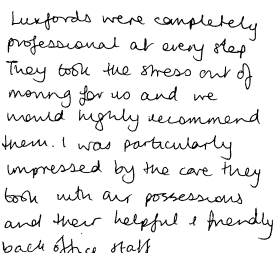 Luxfords were completely
professional at every step
They took the stress out of
moving for us and we
would highly recommend
them. I was particularly
impressed by the care they
took with our possessions
and their helpful & friendly
back office staff